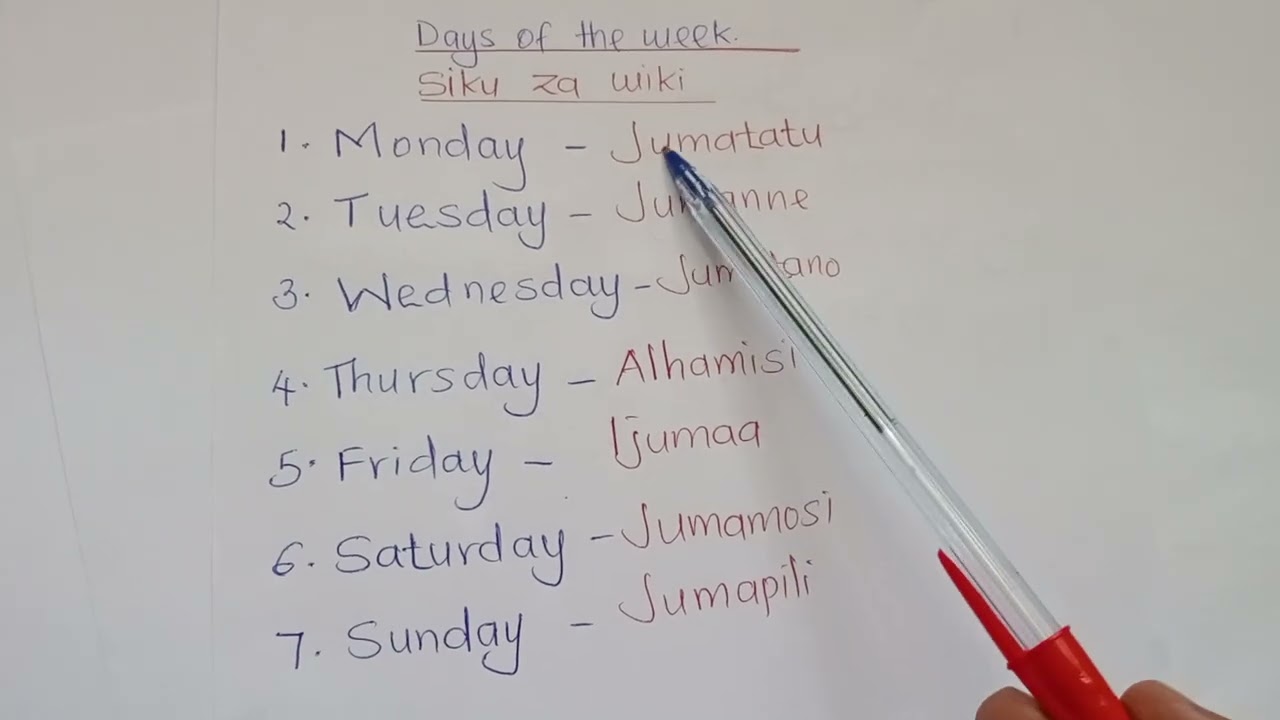 Days of the week.
Siku za wiki
1. Monday - Jumatatu
2. Tuesday -
3. Wednesday -
4. Thursday - Alhamisi
5. Friday - Ijumaa
6. Saturday - Jumamosi
7. Sunday - Jumapili